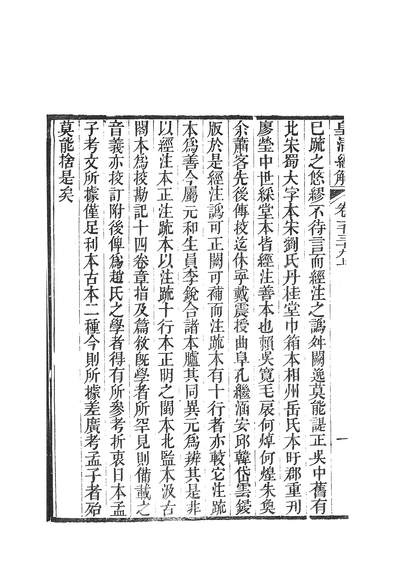 皇清經解 卷一千三十九上 一
已疏之悠繆不待言而經注之譌舛闕逸莫能諟正吳中舊有
北宋蜀大字本宋劉氏丹桂堂巾箱本相州岳氏本旴郡重刊
廖瑩中世綵堂本皆經注善本也賴吳寬毛扆何焯何煌朱奐
余蕭客先後傳校迄休寧戴震授曲阜孔繼涵安邱韓岱雲鋟
版於是經注譌可正闕可補而注疏本有十行者亦較它注疏
本爲善今屬元和生員李銳合諸本臚其同異元爲辨其是非
以經注本正注疏本以注疏十行本正明之閩本北監本汲古
閣本爲挍勘記十四卷章指及篇敘旣學者所罕見則備載之
音義亦挍訂附後俾爲趙氏之學者得有所參考折衷日本孟
子考文所據僅足利本古本二種今則所據差廣考孟子者殆
莫能捨是矣